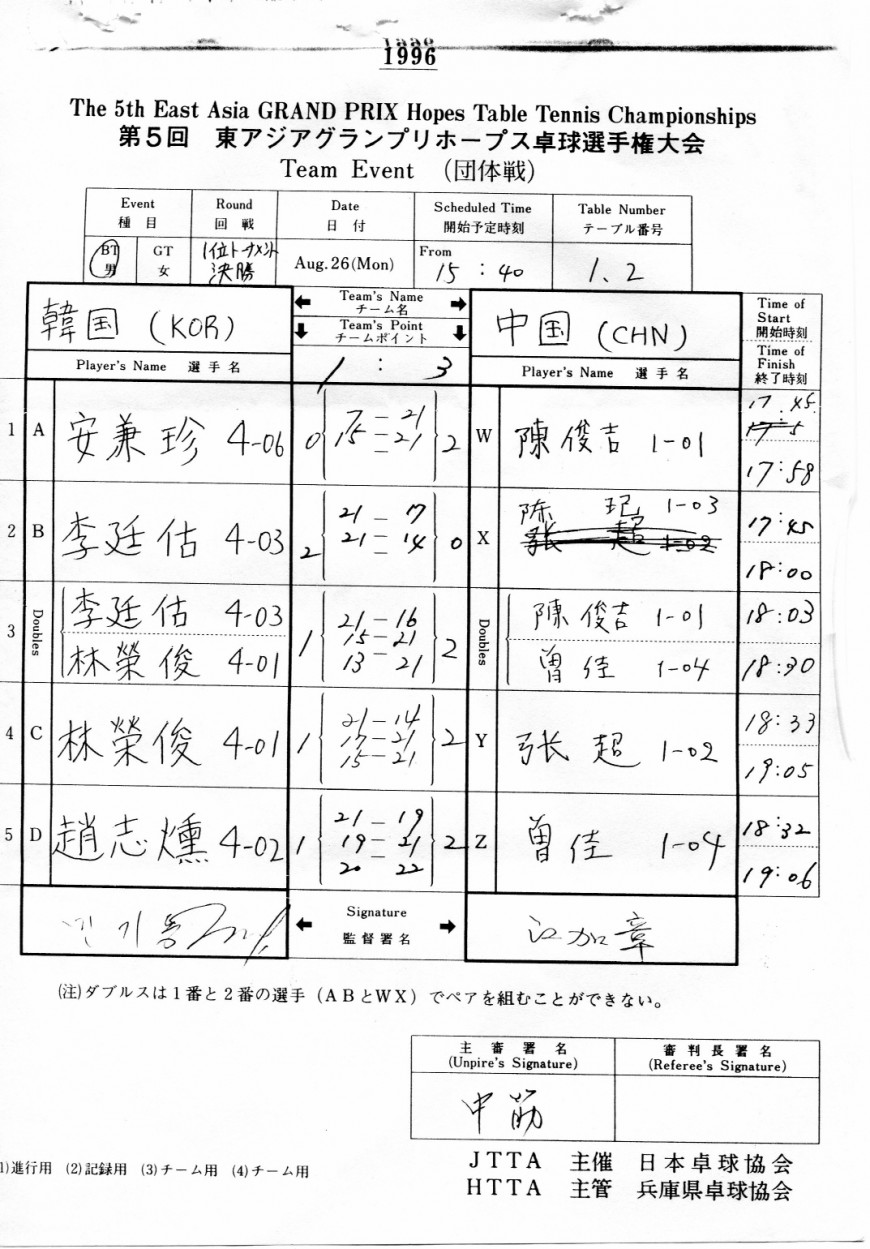 1996
The 5th East Asia GRAND PRIX Hopes Table Tennis Championships
第5回 東アジアグランプリホープス卓球選手権大会
Team Event (団体戦)
Event Round Date Scheduled Time Table Number
種目 回戦 日付 開始予定時刻 テーブル番号
BT 男 GT 女 1位トーナメント 決勝 Aug.26(Mon) From 15:40 1.2
韓国 (KOR) ← Team's Name チーム名 → 中国 (CHN) Time of Start 開始時刻
↓ Team's Point チームポイント ↓
Player's Name 選手名 1 : 3 Player's Name 選手名 Time of Finish 終了時刻
1 A 安兼珍 4-06 0 7-21 15-21 - 2 W 陳俊吉 1-01 17.45 17:58
2 B 李廷佑 4-03 2 21-17 21-14 - 0 X 陈玘 1-03 张超 1-02 17:45 18:00
3 Doubles 李廷佑 4-03 1 21-16 15-21 13-21 2 Doubles 陳俊吉 1-01 18:03
林榮俊 4-01 曽佳 1-04 18:30
4 C 林榮俊 4-01 1 21-14 -21 15-21 2 Y 张超 1-02 18:33 19:05
5 D 趙志燻 4-02 1 21-19 19-21 20-22 2 Z 曽佳 1-04 18:32 19:06
← Signature 監督署名 → 江加章
(注)ダブルスは1番と2番の選手(ABとWX)でペアを組むことができない。
主審署名 (Unpire's Signature) 審判長署名 (Referee's Signature)
中筋
1)進行用 (2)記録用 (3)チーム用 (4)チーム用
JTTA 主催 日本卓球協会
HTTA 主管 兵庫県卓球協会